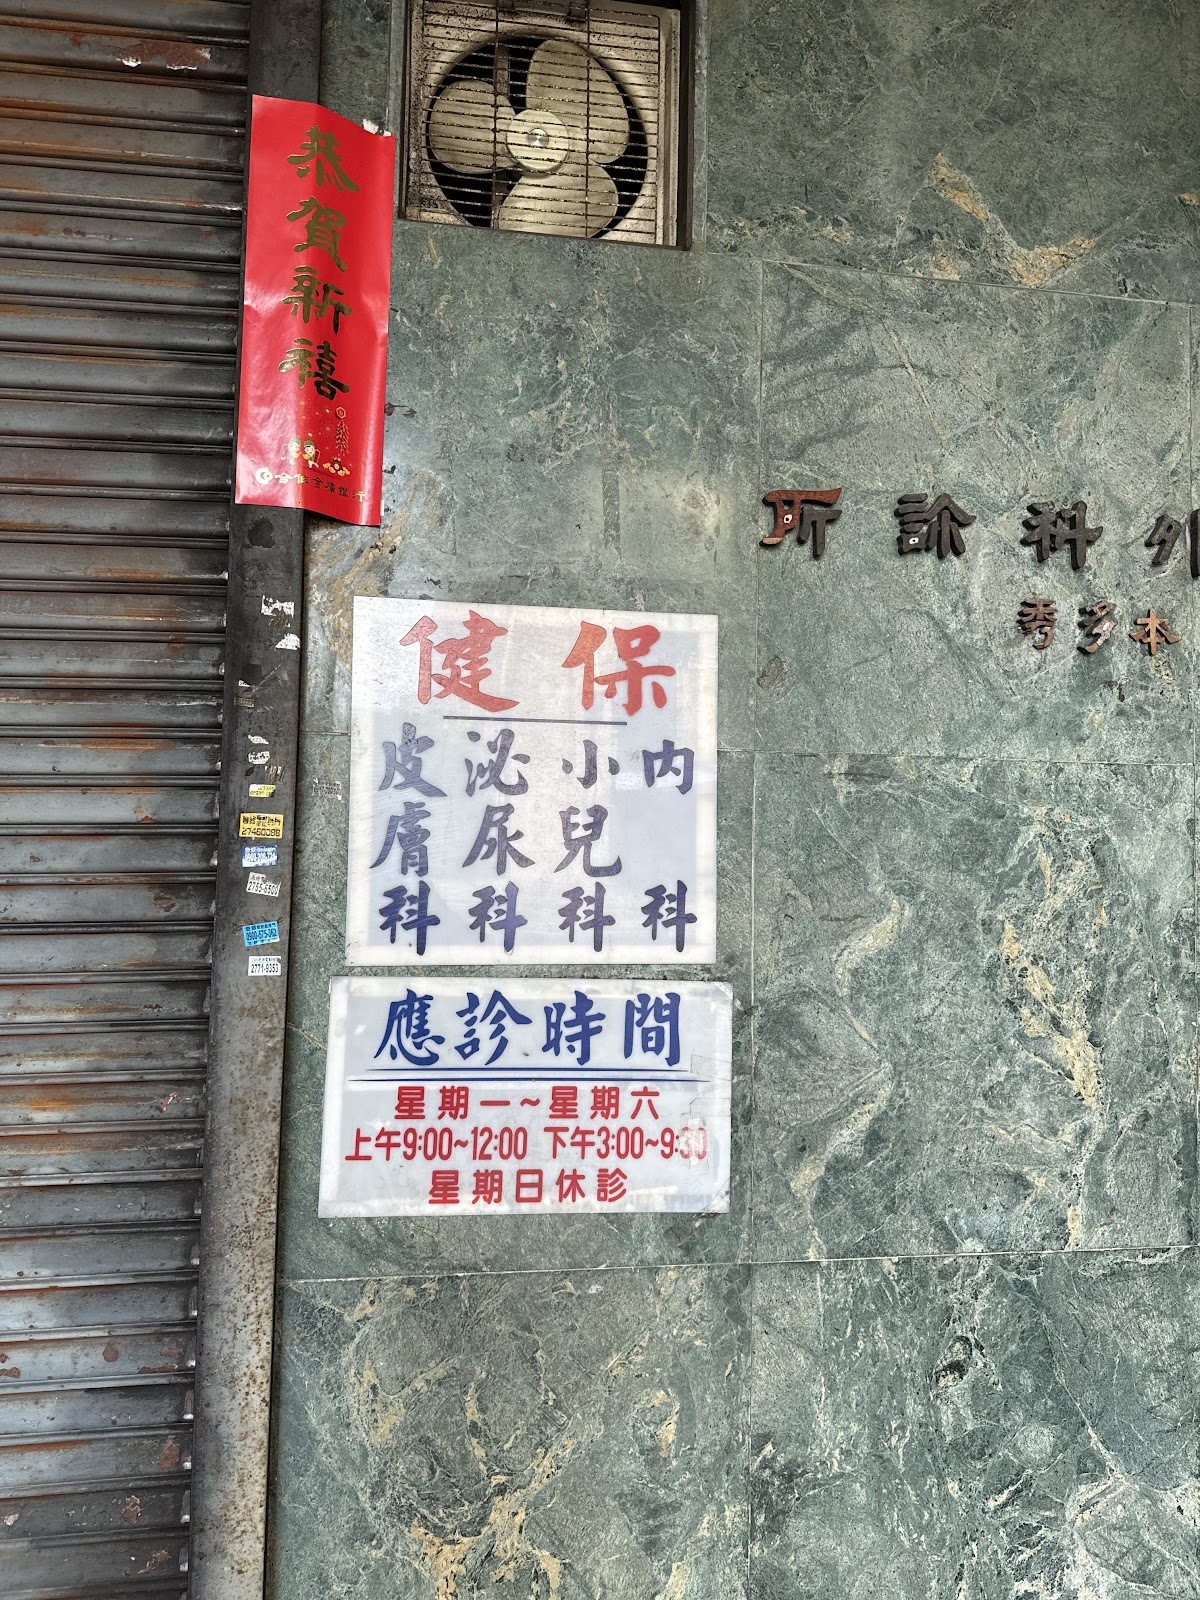 恭賀新禧
合作金庫銀行
外科診所
本多秀
健保
內科
小兒科
泌尿科
皮膚科
應診時間
星期一~星期六
上午9:00~12:00 下午3:00~9:30
星期日休診
27460088
2771-9353